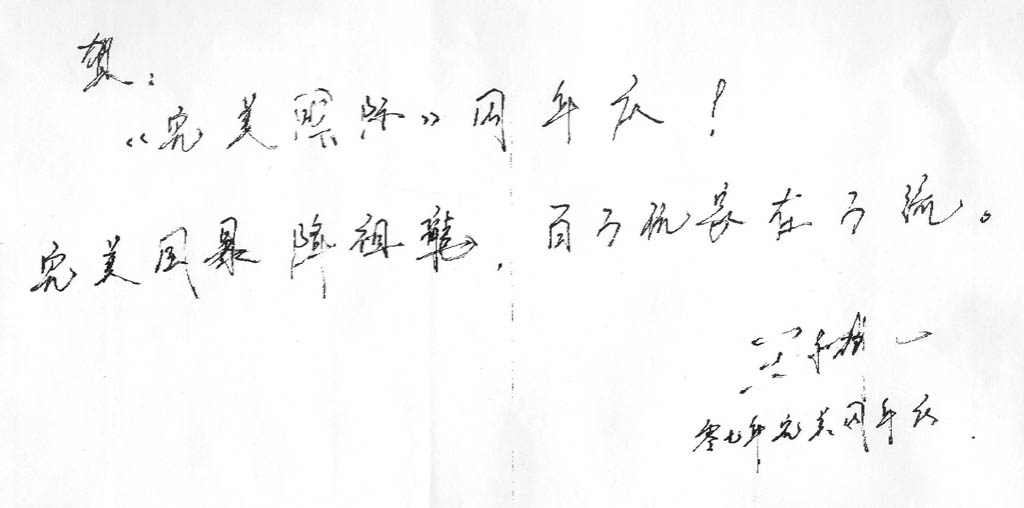 贺:
《完美国际》周年庆!
完美风暴降祖龍,百万玩家在万流。
零七年完美周年庆